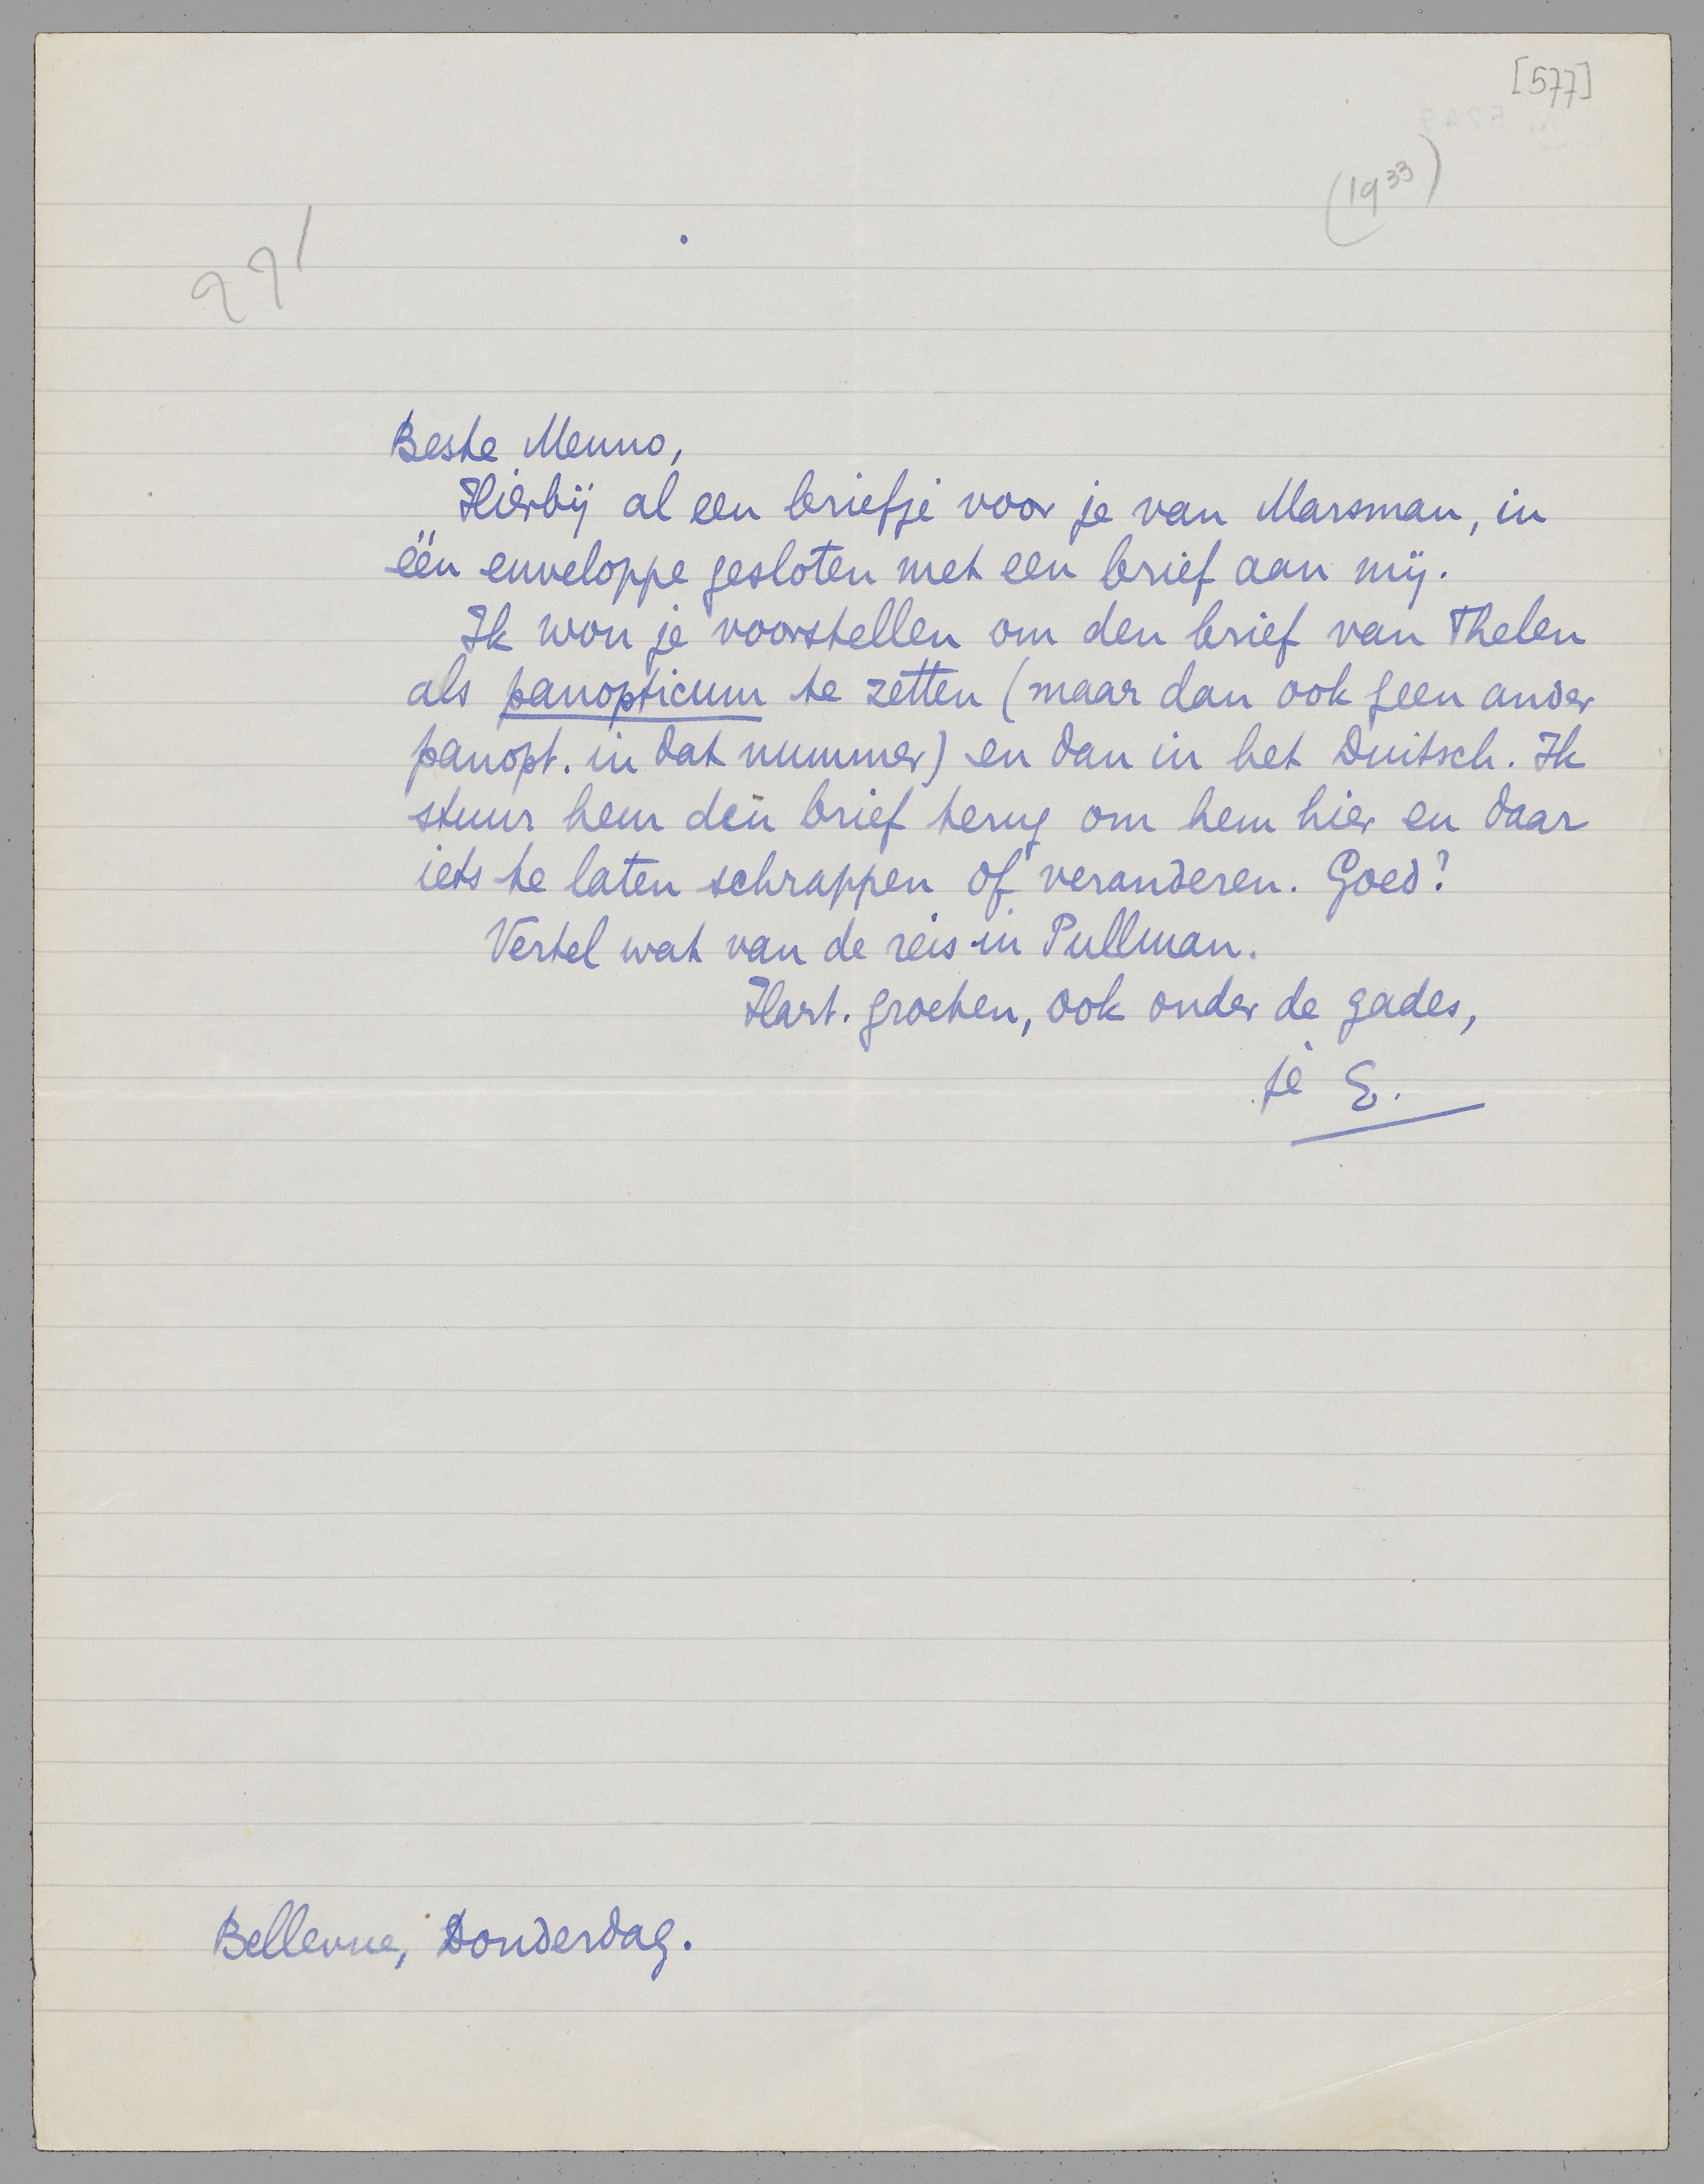 [577]
(1933)
291
Beste Menno,
Hierbij al een briefje voor je van Marsman, in
één enveloppe gesloten met een brief aan mij.
Ik wou je voorstellen om den brief van Thelen
als panopticum te zetten (maar dan ook geen ander
panopt. in dat nummer) en dan in het Duitsch. Ik
stuur hem den brief terug om hem hier en daar
iets te laten schrappen of veranderen. Goed?
Vertel wat van de reis in Pullman.
Hart. groeten, ook onder de gades,
je E.
Bellevue, Donderdag.